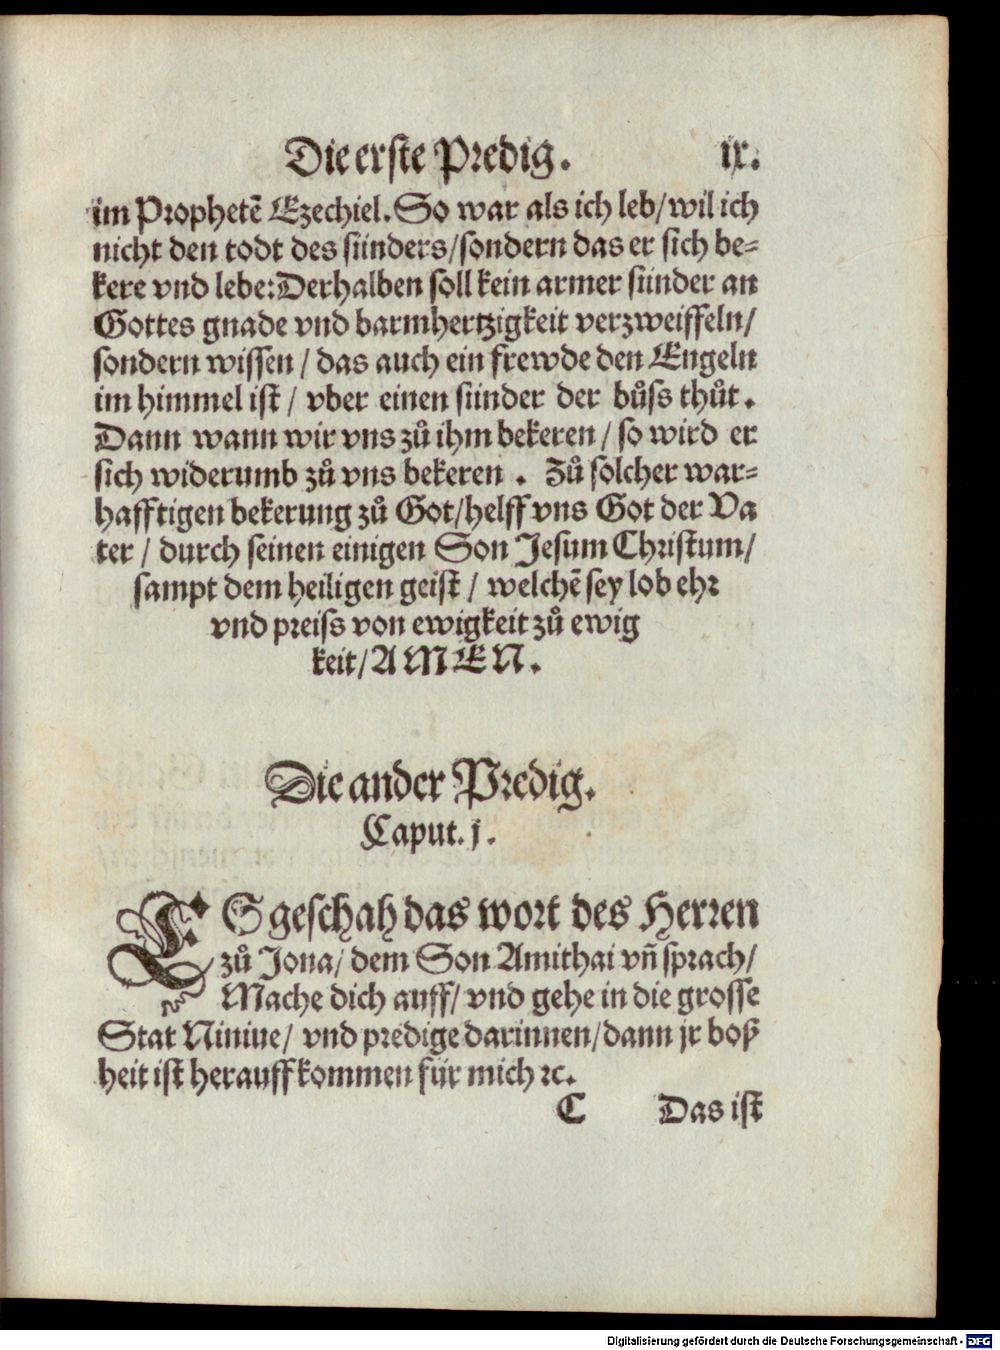 Die erste Predig. ix.
im Prophetẽ Ezechiel. So war als ich leb/ wil ich
nicht den todt des sünders/ sondern das er sich be⸗
kere vnd lebe: Derhalben soll kein armer sünder an
Gottes gnade vnd barmhertzigkeit verzweiffeln/
sondern wissen / das auch ein frewde den Engeln
im himmel ist / vber einen sünder der bůss thůt.
Dann wann wir vns zů ihm bekeren / so wird er
sich widerumb zů vns bekeren . Zů solcher war⸗
hafftigen bekerung zů Got/ helff vns Got der Va
ter / durch seinen einigen Son Jesum Christum/
sampt dem heiligen geist / welchẽ sey lob ehr
vnd preiss von ewigkeit zů ewig
keit/ AMEN.
Die ander Predig.
Caput. j.
ES geschah das wort des Herren
zů Jona/ dem Son Amithai vñ sprach/
Mache dich auff/ vnd gehe in die grosse
Stat Niniue/ vnd predige darinnen/ dann jr boß
heit ist herauff kommen für mich ꝛc.
C Das ist
Digitalisierung gefördert durch die Deutsche Forschungsgemeinschaft - DFG